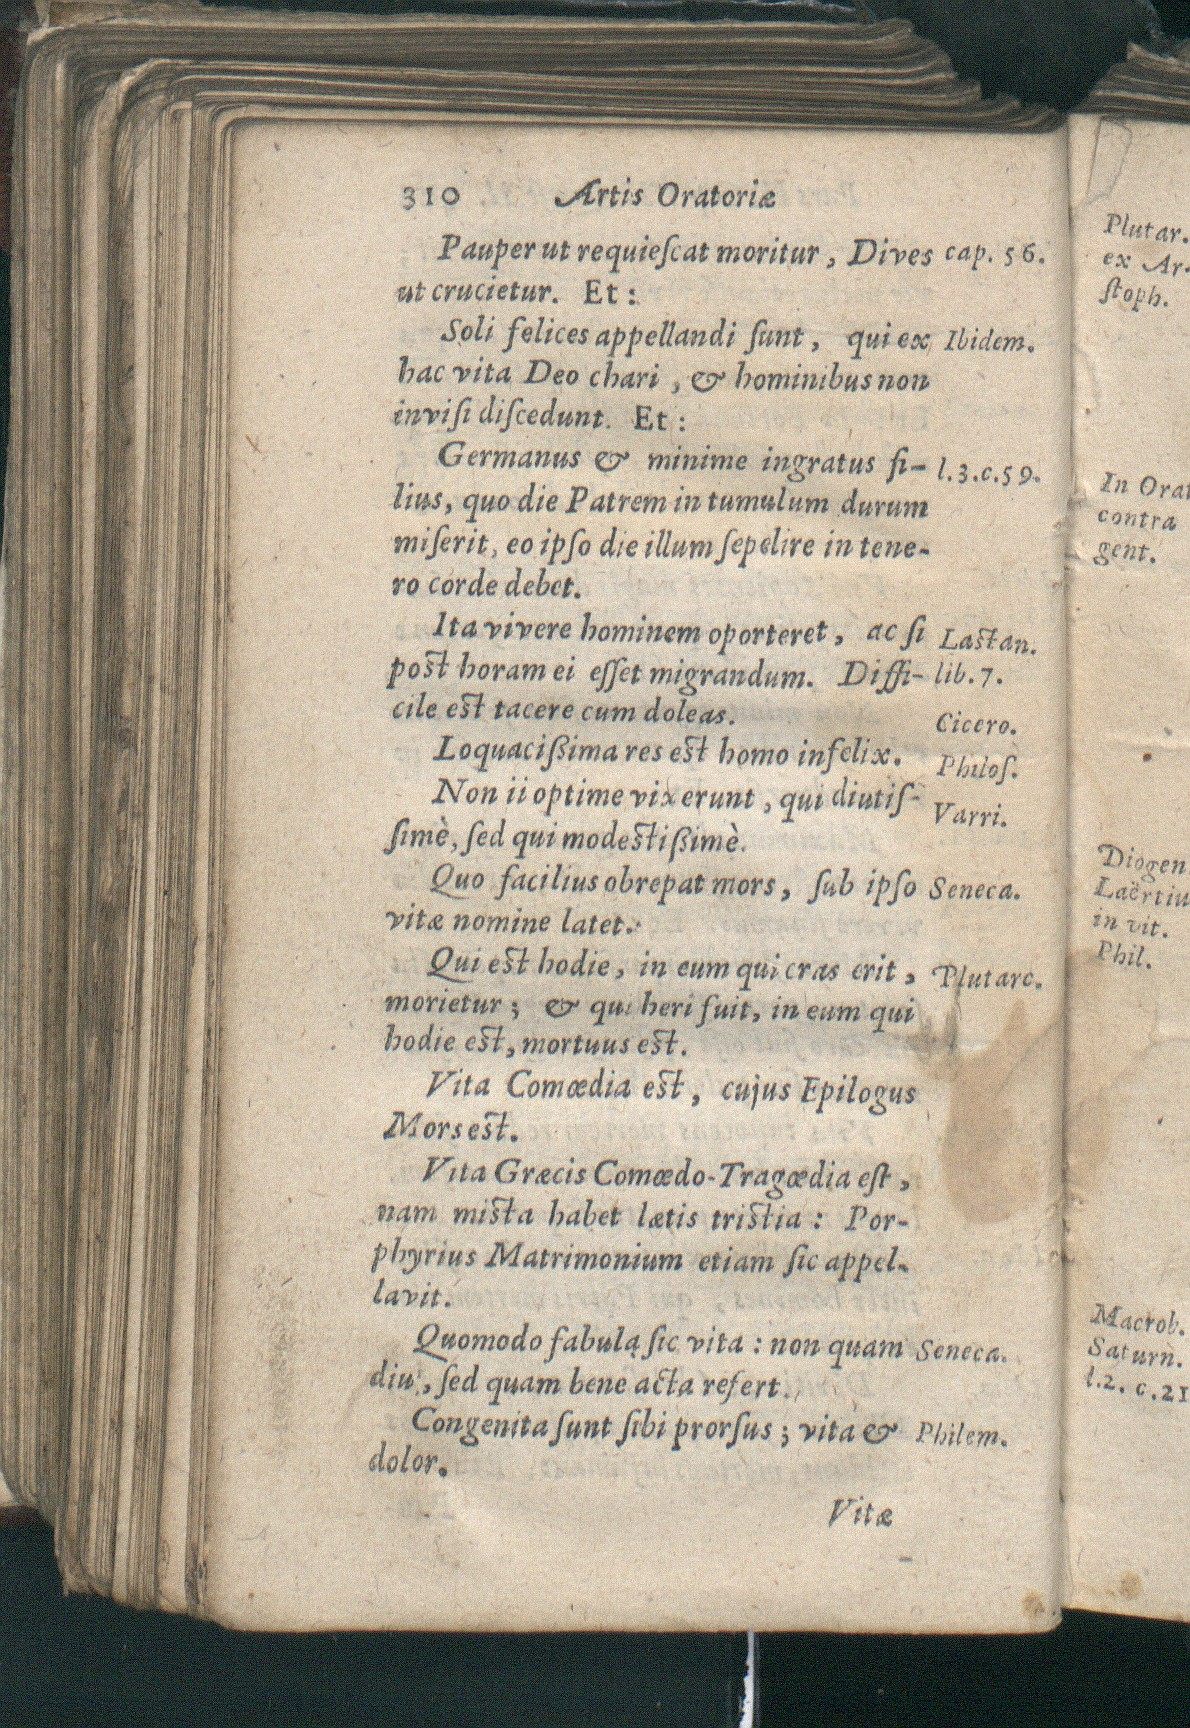 310 Artis Oratoriæ
Pauper ut requieſcat moritur, Dives cap. 56.
ut crucietur. Et:
Soli felices appellandi ſunt, qui ex Ibidem.
hac vita Deo chari, & hominibus non
inviſi diſcedunt. Et:
Germanus & minime ingratus fi- l.3.c.59.
lius, quo die Patrem in tumulum durum
miſerit, eo ipſo die illum ſepelire in tene-
ro corde debet.
Ita vivere hominem oporteret, ac ſi Lactan.
post horam ei eſſet migrandum. Diffi- lib. 7.
cile est tacere cum doleas. Cicero.
Loquacißima res est homo infelix. Philoſ.
Non ii optime vixerunt, qui diutiſ- Varri.
ſimè, ſed qui modestißimè.
Quo facilius obrepat mors, ſub ipſo Seneca.
vitæ nomine latet.
Qui est hodie, in eum qui cras erit, Plutarc.
morietur; & qui heri fuit, in eum qui
hodie est, mortuus est.
Vita Comœdia est, cujus Epilogus
Mors est.
Vita Græcis Comœdo-Tragœdia eſt,
nam mista habet lætis tristia: Por-
phyrius Matrimonium etiam ſic appel-
lavit.
Quomodo fabula ſic vita: non quam Seneca.
diu, ſed quam bene acta refert.
Congenita ſunt ſibi prorſus; vita & Philem.
dolor.
Vitæ
Plutar.
ex Ar-
stoph.
In Orat
contra
gent.
Diogen
Laërtiu
in vit.
Phil.
Macrob.
Saturn.
l.2. c.21